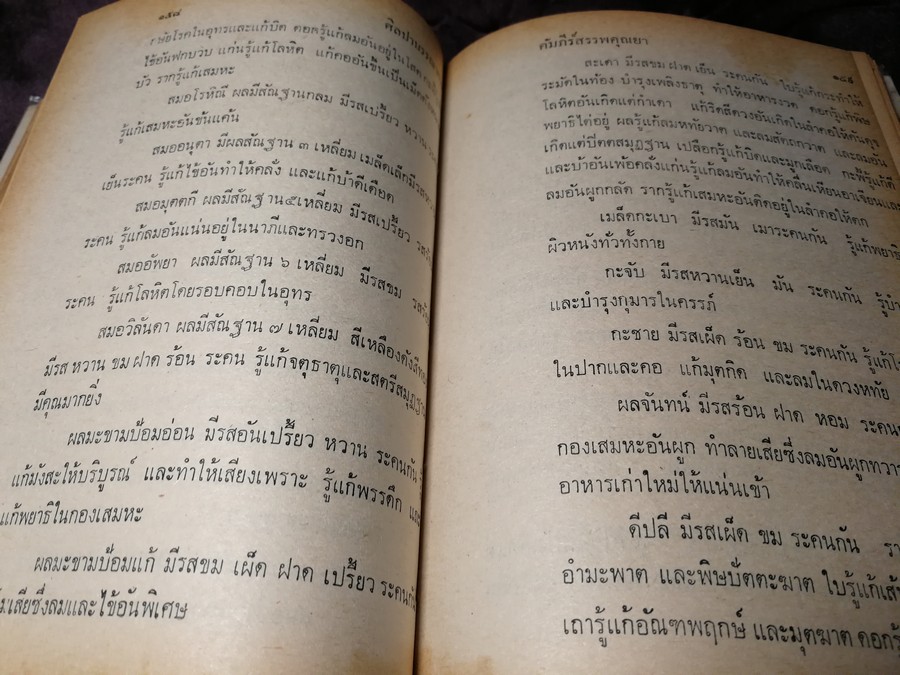 ๑๕๘
ศิลปาบรรณาคาร
โรคในอุทรและแก้บิด ดอกรู้แก้ลมอันอยู่ใน
ไข้อันฟกบวบ แก่นรู้แก้โลหิต
บัว รากรู้แก้เสมหะ
สมอโรหิณี ผลมีสัณฐานกลม มีรสเปรี้ยว หวาน
รู้แก้เสมหะอันขันแค้น
สมออนุตา มีผลสัณฐาน ๓ เหลี่ยม เมล็ดเล็กมีรส
เย็นระคน รู้แก้ไข้อันทำให้คลั่ง และแก้บ้าดีเดือด
สมอมุตตกี ผลมีสัณฐาน๕เหลี่ยม มีรสเปรี้ยว
ระคน รู้แก้ลมอันแน่นอยู่ในนาภีและทรวงอก
สมออัพยา ผลมีสัณฐาน ๖ เหลี่ยม มีรสขม
ระคน รู้แก้โลหิตโดยรอบคอบในอุทร
สมอวิลันดา ผลมีสัณฐาน ๗ เหลี่ยม สีเหลืองดัง
มีรส หวาน ขม ฝาด ร้อน ระคน รู้แก้จตุธาตุและสตรีสมุฏฐาน
มีคุณมากยิ่ง
ผลมะขามป้อมอ่อน มีรสอันเปรี้ยว หวาน ระคนกัน
แก้มังสะให้บริบูรณ์ และทำให้เสียงเพราะ รู้แก้พรรดึก
แก้พยาธิในกองเสมหะ
ผลมะขามป้อมแก้ มีรสขม เผ็ด ฝาด เปรี้ยว ระคนกัน
เสียซึ่งลมและไข้อันพิเศษ
คัมภีร์สรรพคุณยา
สะเดา มีรสขม ฝาด เย็น ระคนกัน ใบรู้แก้
ระมัดในท้อง บำรุงเพลิงธาตุ ทำให้อาหารงวด ดอกรู้แก้
โลหิตอันเกิดแต่กำเดา แก้ริดสีดวงอันเกิดในลำคอให้คัน
พยาธิไต่อยู่ ผลรู้แก้ลมหทัยวาต และลมสัตถกวาต และลมอัน
เกิดแต่ปิตตสมุฏฐาน เปลือกรู้แก้บิดและมูกเลือด กะพี้รู้แก้ดี
และบ้าอันเพ้อคลั่งแก่นรู้แก้ลมอันทำให้คลื่นเหียนอาเจียนและ
ลมอันผูกกลัด รากรู้แก้เสมหะอันติดอยู่ในลำคอให้ตก
เมล็ดกะเบา มีรสมัน เมาระคนกัน รู้แก้พยาธิ
ผิวหนังทั่วทั้งกาย
กะจับ มีรสหวานเย็น มัน ระคนกัน
และบำรุงกุมารในครรภ์
กะชาย มีรสเผ็ด ร้อน ขม ระคนกัน รู้แก้
ในปากและคอ แก้มุตกิด และลมในดวงหทัย
ผลจันทน์ มีรสร้อน ฝาด หอม
กองเสมหะอันผูก ทำลายเสียซึ่งลมอันผูกทวาร
อาหารเก่าใหม่ให้แน่นเข้า
ดีปลี มีรสเผ็ด ขม ระคนกัน
อำมะพาต และพิษปัตตะฆาต ใบรู้แก้
เถารู้แก้อัณฑพฤกษ์ และมุตฆาต ดอก